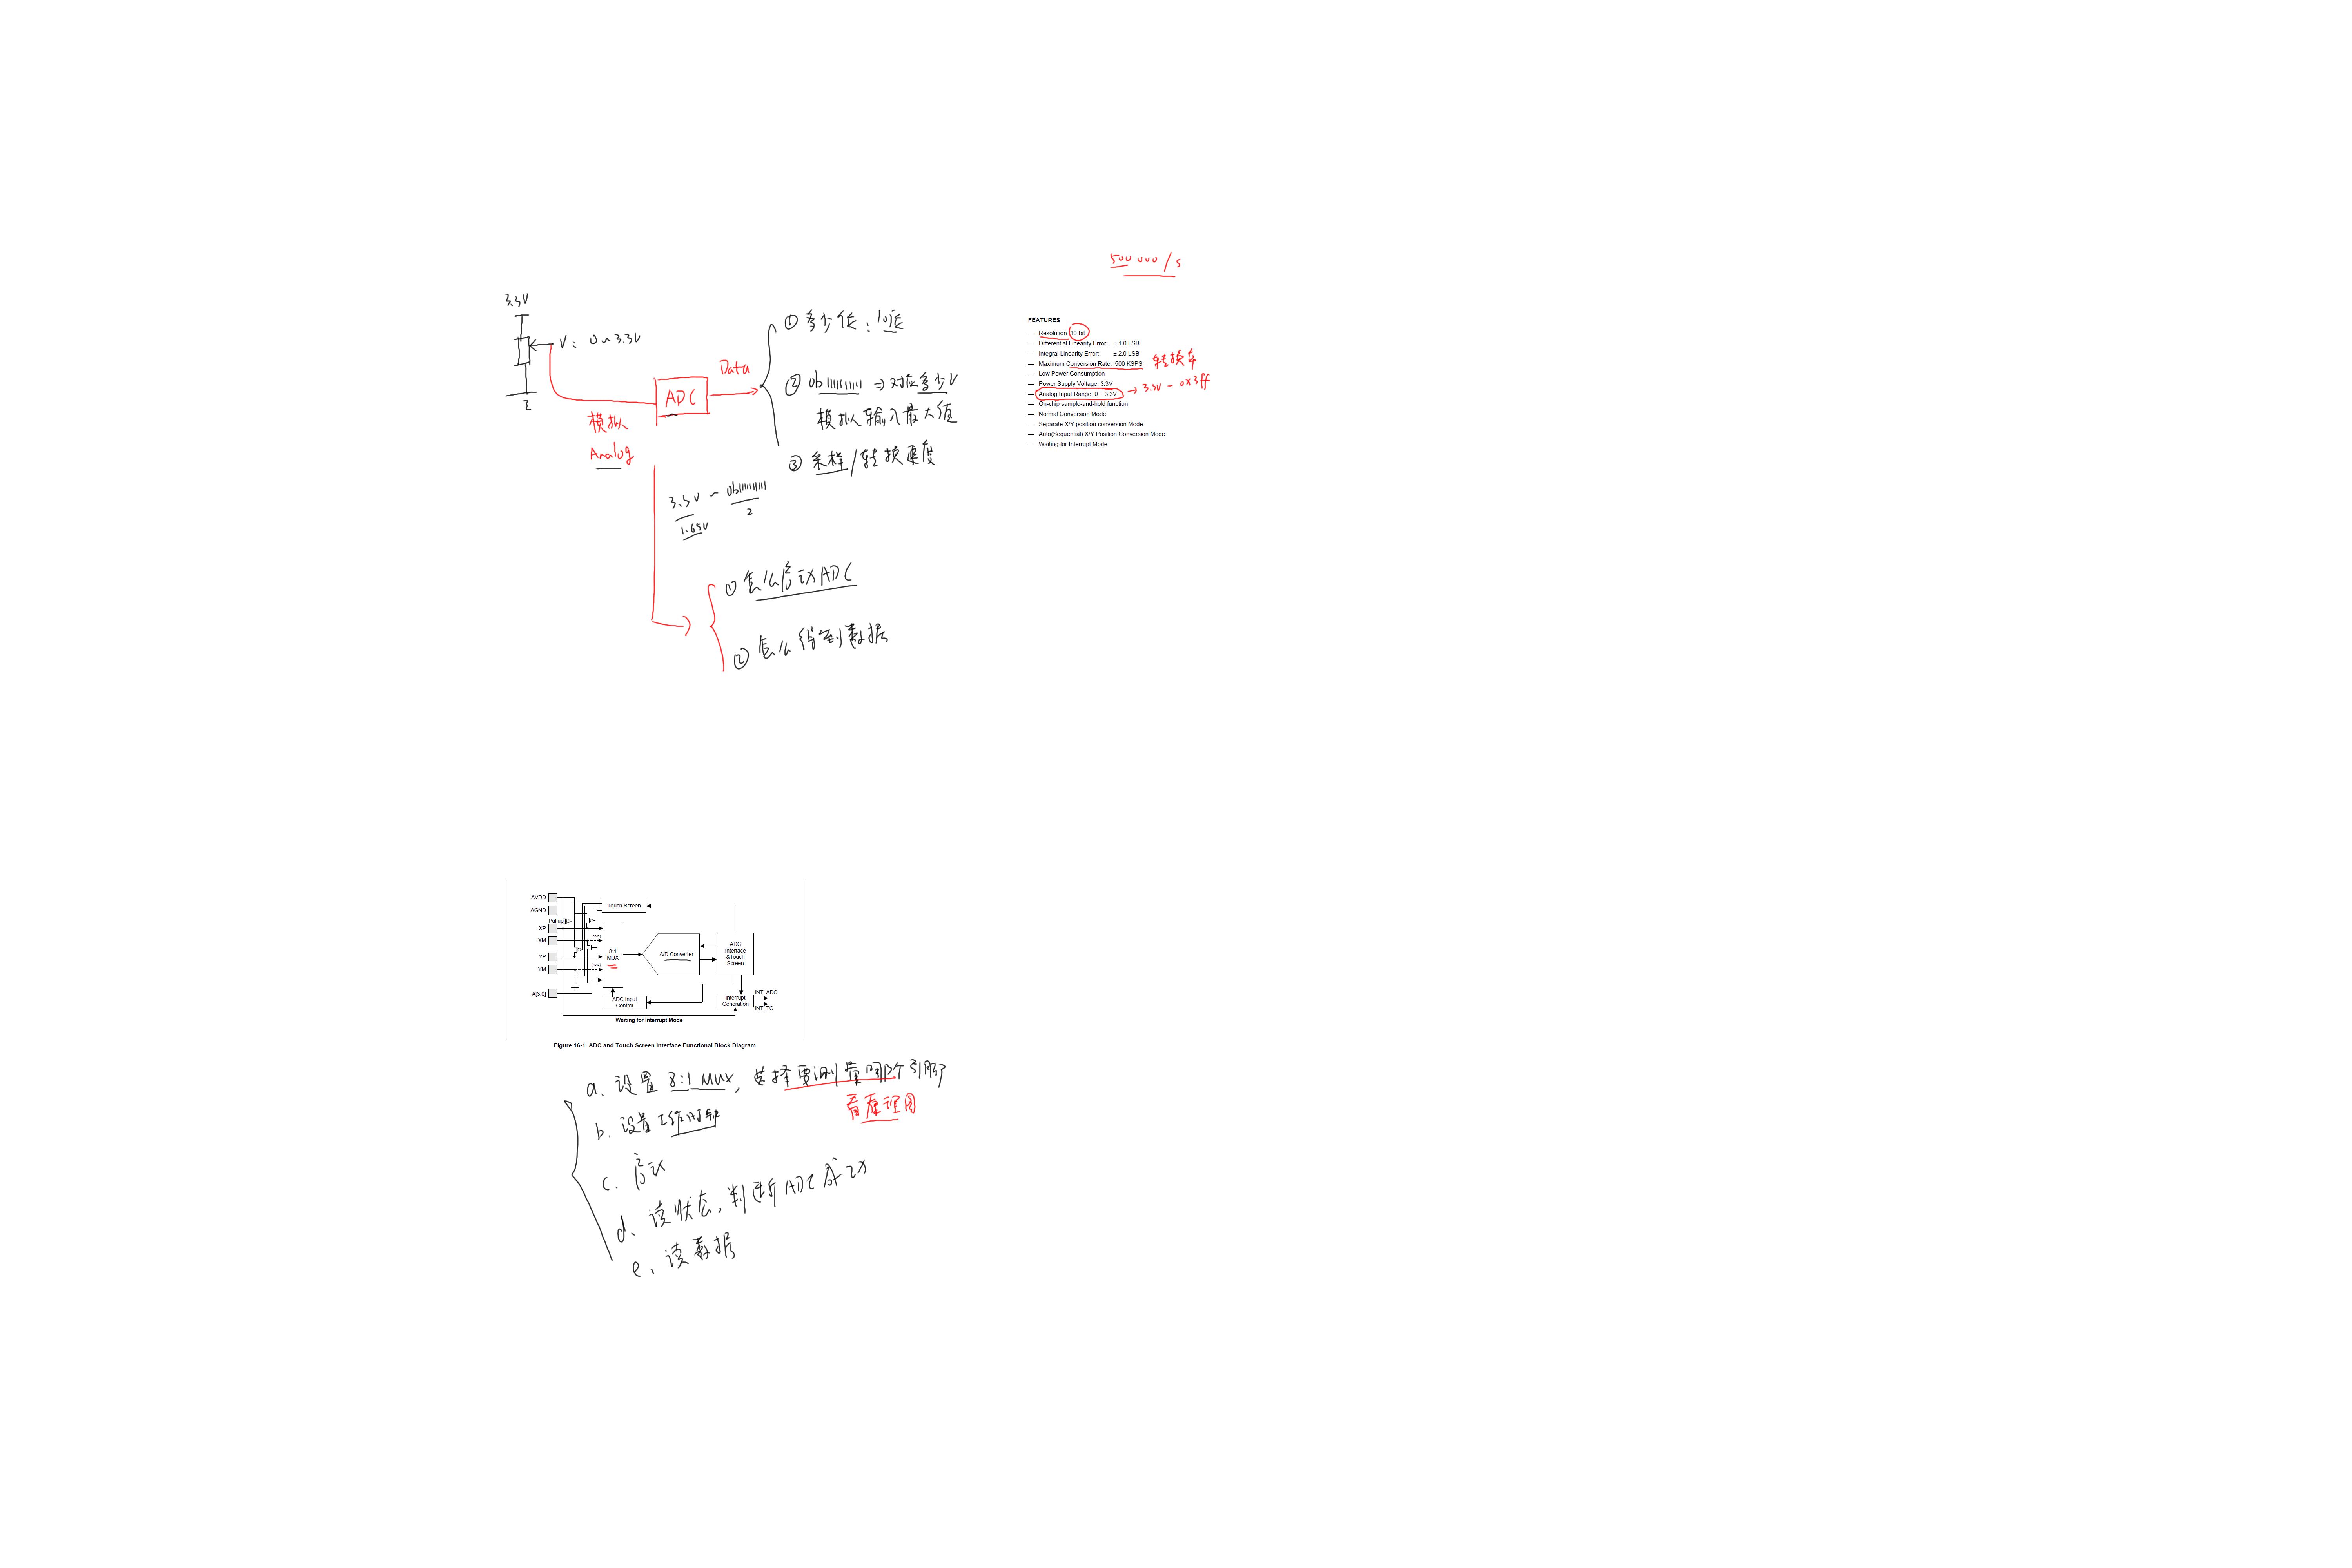 500 000 / s
3.3V
V: 0~3.3V
ADC
模拟
Analog
Data
① 多少位: 10位
② 0b1111111111 => 对应多少V
模拟输入最大值
③ 采样/转换速度
3.3V ~ 0b1111111111
1.65V
2
① 怎么启动ADC
② 怎么得到数据
FEATURES
— Resolution: 10-bit
— Differential Linearity Error: ± 1.0 LSB
— Integral Linearity Error: ± 2.0 LSB
— Maximum Conversion Rate: 500 KSPS 转换率
— Low Power Consumption
— Power Supply Voltage: 3.3V
— Analog Input Range: 0 ~ 3.3V → 3.3V - 0x3ff
— On-chip sample-and-hold function
— Normal Conversion Mode
— Separate X/Y position conversion Mode
— Auto(Sequential) X/Y Position Conversion Mode
— Waiting for Interrupt Mode
AVDD
AGND
Pullup
XP
XM
YP
YM
A[3:0]
Touch Screen
(note)
(note)
8:1
MUX
A/D Converter
ADC
Interface
&Touch
Screen
ADC Input
Control
Interrupt
Generation
INT_ADC
INT_TC
Waiting for Interrupt Mode
Figure 16-1. ADC and Touch Screen Interface Functional Block Diagram
a. 设置 8:1 MUX, 选择要测量哪个引脚
看原理图
b. 设置工作时钟
c. 启动
d. 读状态, 判断ADC成功
e. 读数据